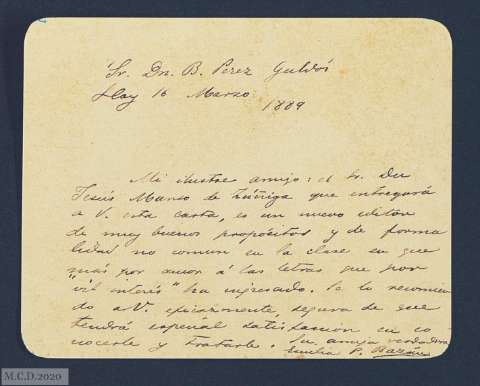 Sr. Dn. B. Perez Galdós
Hoy 16 Marzo
1889
Mi ilustre amigo: el Sr. Dn
Jesús Manso de Zúñiga que entregará
a V. esta carta, es un nuevo editor
de muy buenos propósitos y de forma
lidad no comun en la clase en que
"más por amor á las letras que por
vil interés" ha ingresado. Se lo recomien
do a V. eficazmente, segura de que
tendrá especial satisfaccion en co
nocerle y tratarle. Su amiga verdadera
Emilia P. Bazán
M.C.D.2020